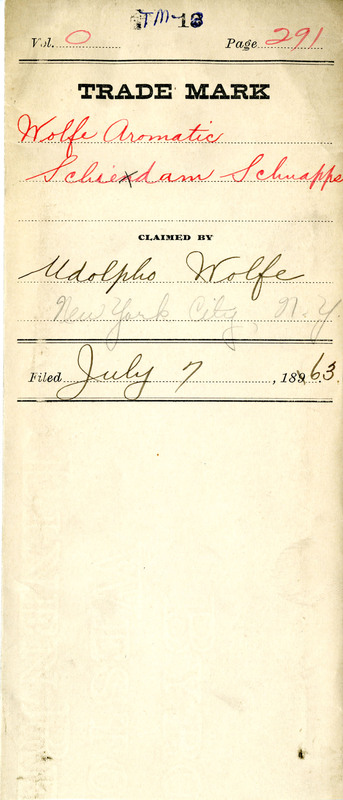 TM-18
Vol. 0 Page 291
TRADE MARK
Wolfe Aromatic
Schiexdam Schnapps
CLAIMED BY
Udolpho Wolfe
New York City, N.Y.
Filed July 7, 1863.